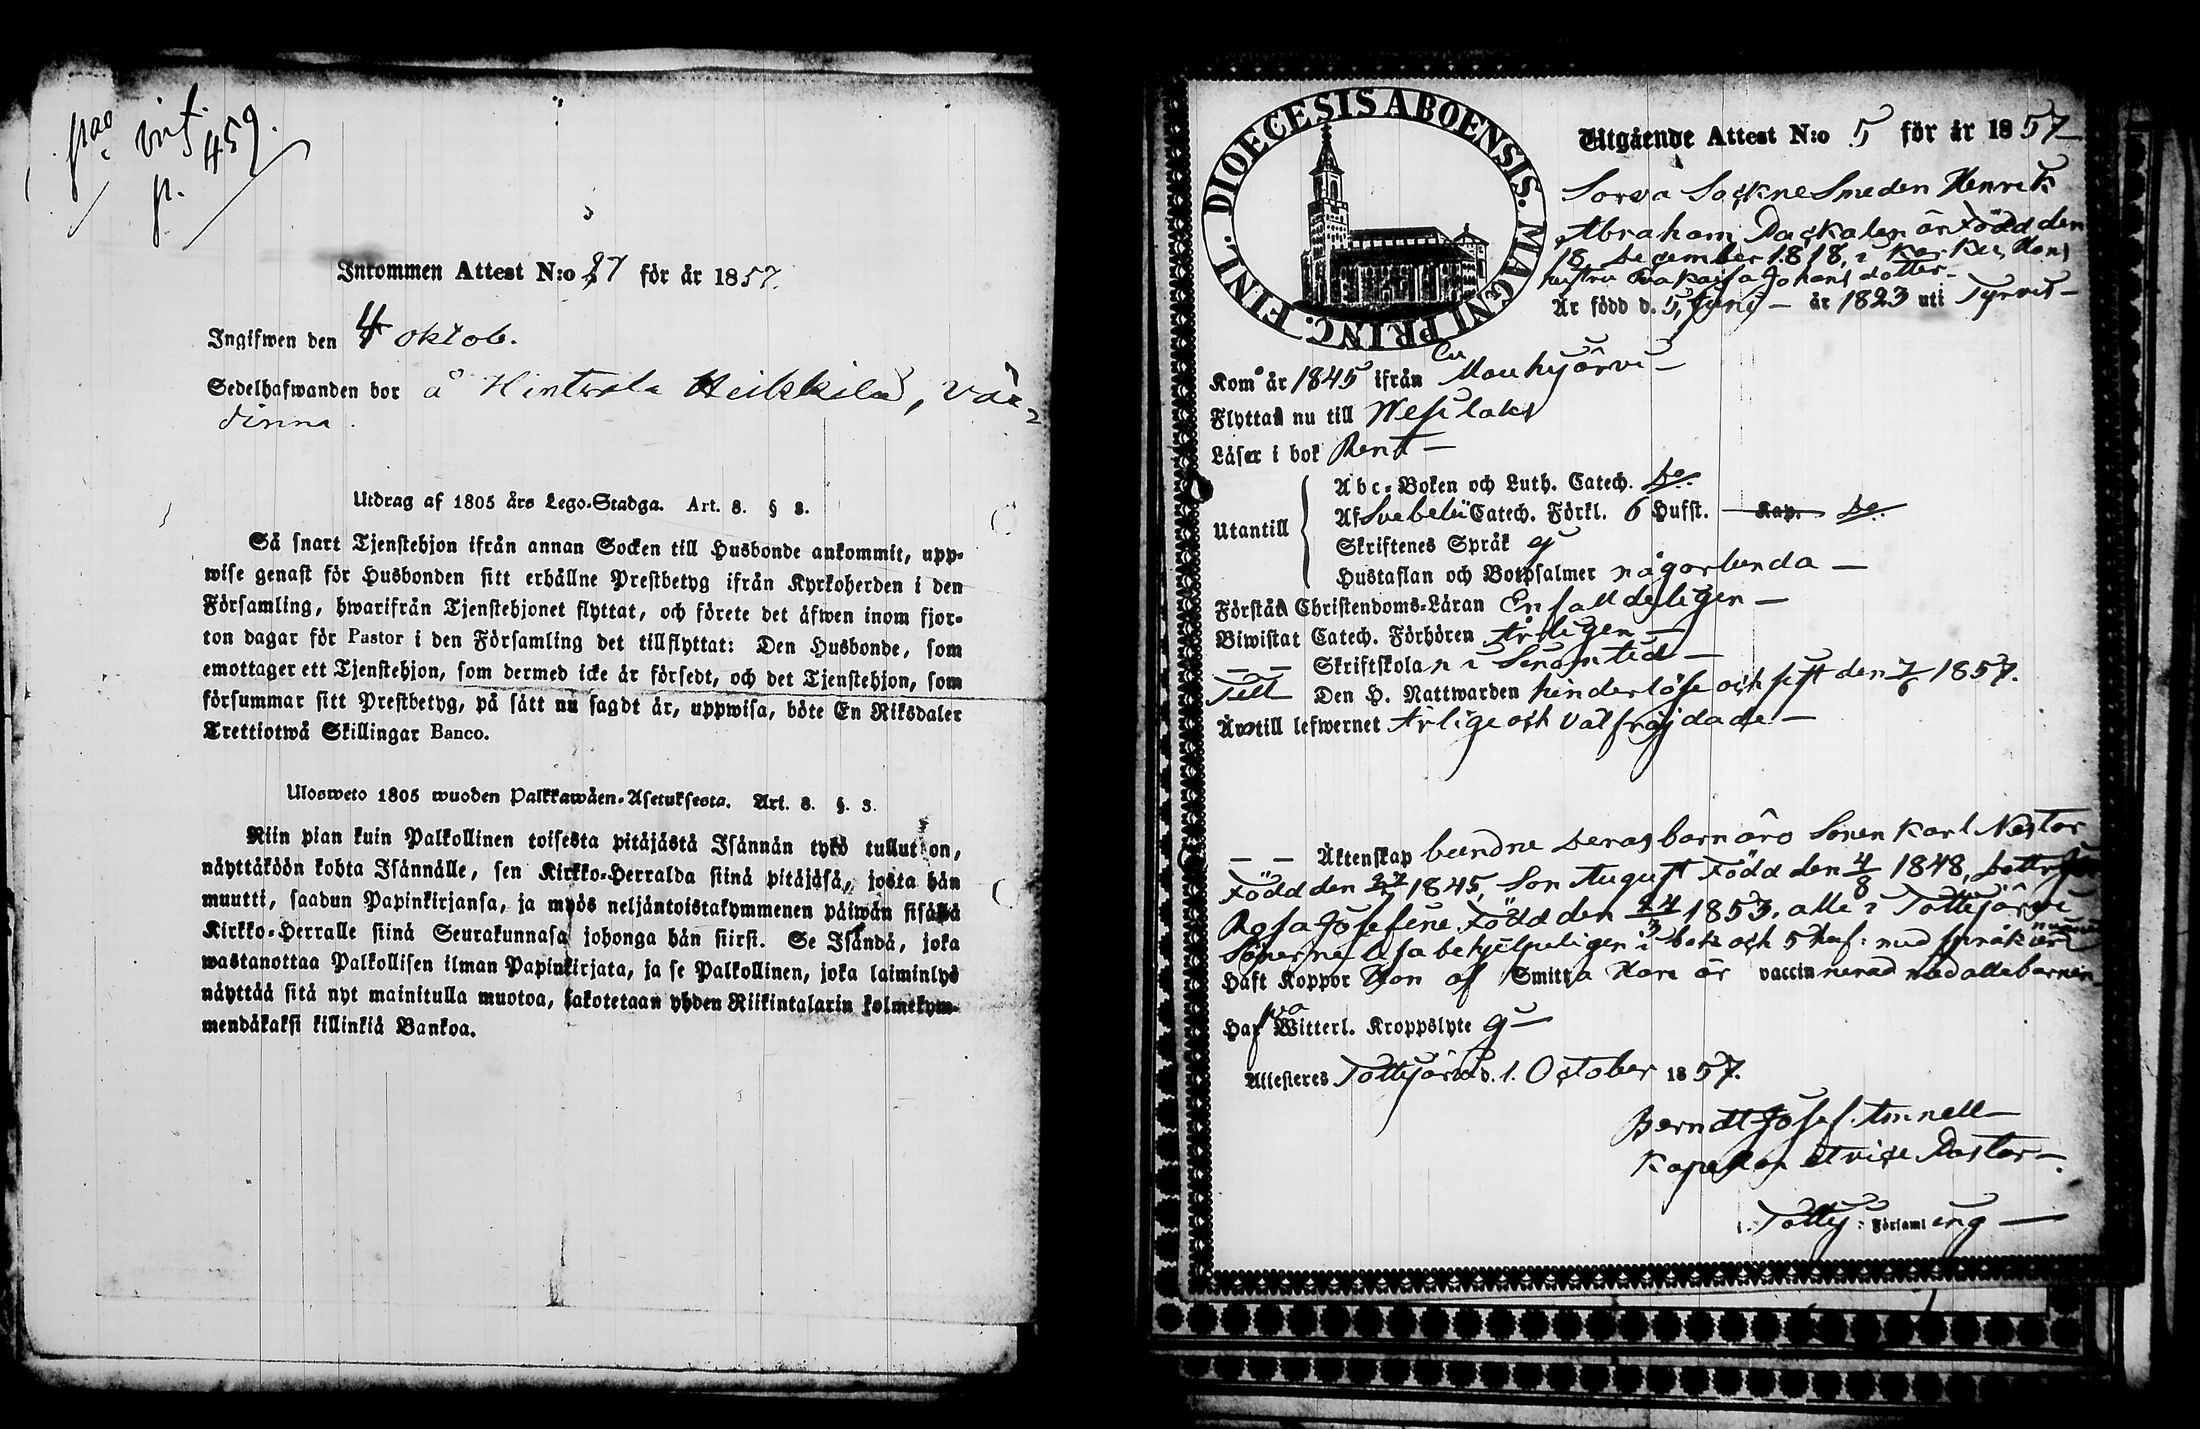 pag inf.
p. 459.
Inkommen Attest N:o 27 för år 1857.
Ingifwen den 4 Oktob.
Sedelhafwanden bor å Hintersla Heikkilä,
Utdrag af 1805 års Lego-Stadga. Art. 8. § 3.
Så snart Tjenstehjon ifrån annan Socken till Husbonde ankommit, upp-
wise genast för Husbonden sitt erhållne Prestbetyg ifrån Kyrkoherden i den
Församling, hwarifrån Tjenstehjonet flyttat, och förete det äfwen inom fjor-
ton dagar för Pastor i den Församling det tillflyttat: Den Husbonde, som
emottager ett Tjenstehjon, som dermed icke är försedt, och det Tjenstehjon, som
försummar sitt Prestbetyg, på sätt nu sagdt är, uppwisa, böte En Riksdaler
Trettiotwå Skillingar Banco.
Ulosweto 1805 wuoden Palkkawäen-Asetuksesta. Art. 8. §. 3.
Niin pian kuin Palkollinen toisesta pitäjästä Isännän tykö tullut on,
näyttäköön kohta Isännälle, sen Kirkko-Herralda siinä pitäjäsä, josta hän
muutti, saadun Papinkirjansa, ja myös neljäntoistakymmenen päiwän sisällä
Kirkko-Herralle siinä Seurakunnasa johonga hän siirsi. Se Isändä, joka
wastanottaa Palkollisen ilman Papinkirjata, ja se Palkollinen, joka laiminlyö
näyttää sitä nyt mainitulla muotoa, sakotetaan yhden Riikintalarin kolmekym-
mendäkaksi killinkiä Bankoa.
DIOECESIS ABOENSIS. MAGNI PRINC. FINL.
Utgående Attest N:o 5 för år 1857
Sorva Sockne Smeden Henrik
Abraham Packalen är Född den
18 December 1818, i Karkku, Hans
hustru Eva Kaisa Johans dotter
Är född d. 5 Juni — år 1823 uti Tyrvis —
Kom år 1845 ifrån Mouhijärvi —
Flyttas nu till Wesilaks
Läser i bok Rent —
Utantill
Abc-Boken och Luth. Catech. Do.
Af Svebelii Catech. Förkl. 6 Hufst. Kap. Do.
Skriftenes Språk ej
Hustaflan och Botpsalmer någorlunda —
Förstå Christendoms-Läran Enfalldeligen —
Biwistat Catech. Förhören Årligen —
— — Skriftskolan i Sinom tid —
Till Den H. Nattwarden hinderlöse och sist den 7/6 1857.
Äro till lefwernet Ärlige och välfräjdade —
— — Äktenskap bundne Deras barn äro Sonen Karl Nestor
Född den 27/2 1845, Son August Född den 4/8 1848, Dottren
Rosa Josefina Född den 24/3 1853. alle i Tottijärvi
Sönerne läsa behjelpeligen i bok och 5 huf: med språk
Haft Koppor Hon af Smitta Han är vaccinnerad med alla barnen
Haf Witterl. Kroppslyte ej —
Attesteres Tottijärvi d. 1. October 1857.
Berndt Josef
Kapellan et vice Pastor —
i Tottij: Församl ing —